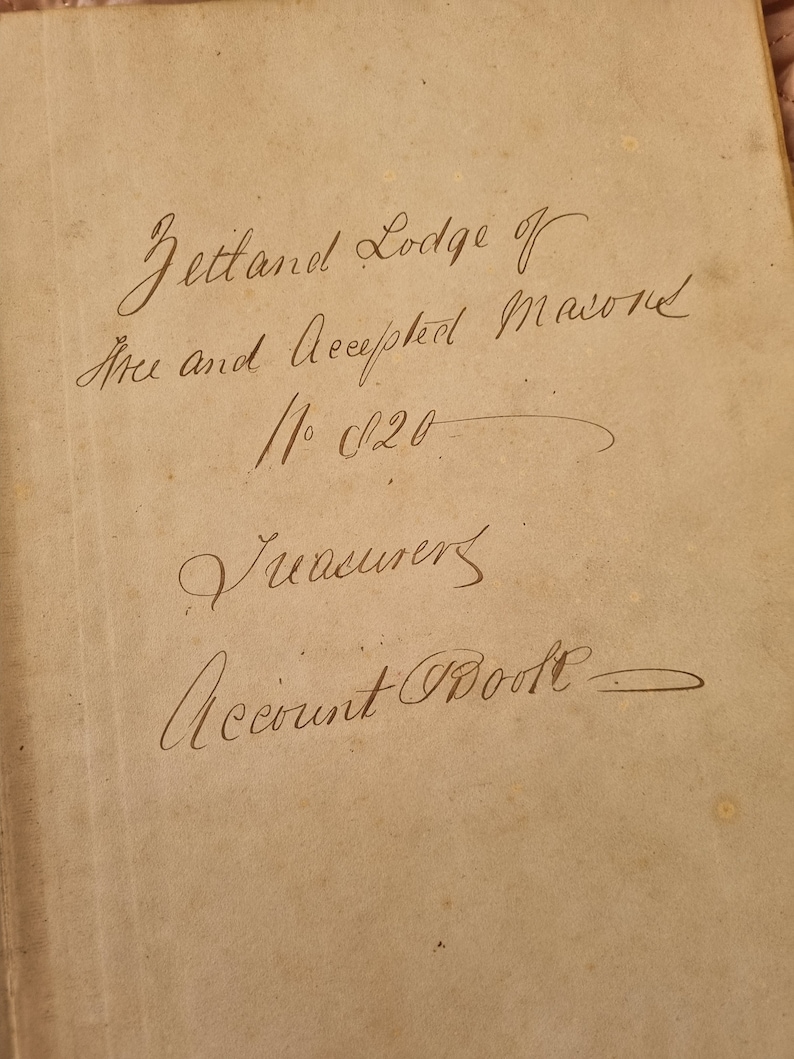 Zetland Lodge of
Free and Accepted Masons
No 820
Treasurers
Account Book